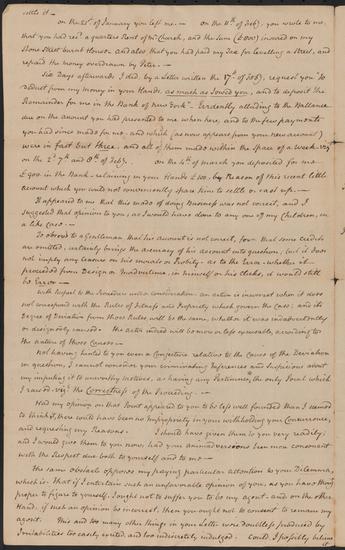 settle it —
on the 21st of January you left me. — on the 11th of Feby. you wrote to me,
that you had recd. a quarters Rent of Mr. Church, and the Sum (£200) insured on my
Stone Street burnt House — and also that you had paid my Tax for levelling a Street, and
repaid the money overdrawn by Peter. —
Six Days afterwards I did, by a Letter written the 17th of Feby, request you "to
deduct from my money in your Hands, as much as I owed you, and to deposit the
Remainder for me in the Bank of New York" — Evidently alluding to the Ballance
due on the account you had presented to me when here, and to the few payments
you had since made for me — and which (as now appears from your new account)
were in fact but three, and all of them made within the space of a week — viz
on the 2d 7th and 8th of Feby. on the 4th of March you deposited for me
£400 in the Bank — retaining in your Hands £100, by Reason of this recent little
account which you could not conveniently spare time to settle or cast up. —
It appeared to me that this mode of doing Business was not correct, and I
suggested that opinion to you, as I would have done to any one of my Children, in
a like case. —
To observe to a Gentleman that his account is not correct, for that some credits
are omitted, certainly brings the accuracy of his account into question, but it does
not imply any censure on his morals or Probity — as to the Error — whether it
proceeded from Design or Inadvertence, in himself or his clerks, it would still
be Error —
With respect to the Procedure under consideration — an action is incorrect when it does
not correspond with the Rules of fitness and Propriety which govern the Case; and its
Degree of Deviation from those Rules will be the same, whether it was inadvertently
or designedly caused. The actor indeed will be more or less excusable, according to
the nature of those Causes —
Not having hinted to you even a Conjecture relative to the Causes of the Deviation
in question, I cannot consider your criminating Inferences and Suspicions about
my imputing it to unworthy motives, as having any Pertinence to the only Point which
I raised — viz. the Correctness of the Proceeding. —
Had my opinion on that Point appeared to you to be less well founded than I seemed
to think it, there could have been no Impropriety in your withholding your Concurrence,
and requesting my Reasons. I should have given them to you very readily;
and I would give them to you now, had your animadversions been more consonant
with the Respect due both to yourself and to me —
The same obstacle opposes my paying particular attention to your Dilemma,
which is — That if I entertain such an unfavorable opinion of you, as you have thought
proper to figure to yourself, I ought not to suffer you to be my agent — and on the other
Hand, if such an opinion be incorrect, then you ought not to consent to remain my
agent. This and too many other things in your Letter were doubtless produced by
Irritabilities too easily excited, and too indiscreetly indulged. Could I possibly believe
it